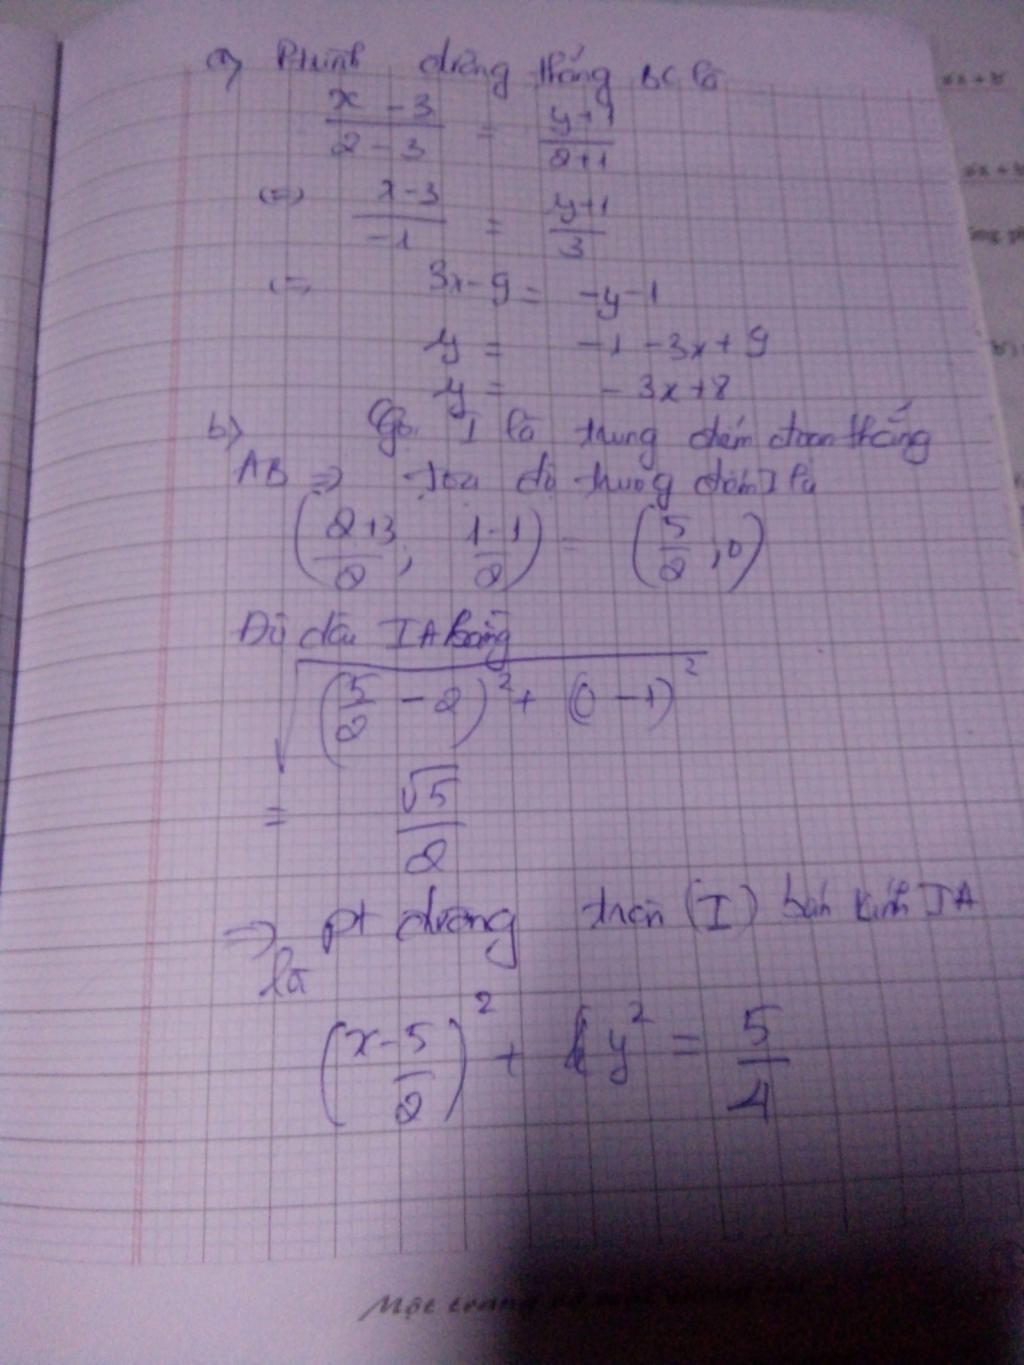 a) Ptrình đường thẳng BC là
x - 3 / 2 - 3 = y+1 / 2+1
(=) x-3 / -1 = y+1 / 3
(=) 3x-9 = -y-1
y = -1-3x+9
y = -3x+8
b) Gọi I là trung điểm đoạn thẳng
AB => Tọa độ trung điểm I là
(2+3 / 2 ; 1-1 / 2) = (5/2 , 0)
Độ dài IA bằng
√(5/2 - 2)² + (0 - 1)²
= √5 / 2
=> Pt đường tròn (I) bán kính IA
là
(x - 5/2)² + y² = 5/4
Một trang vở